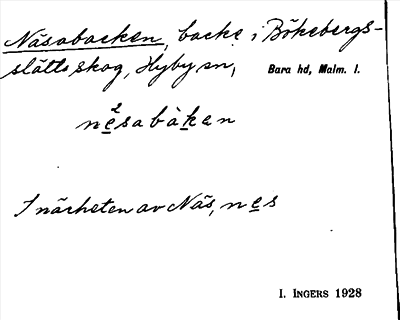 Näsabacken, backe i Bökebergs-
slätts skog, Hyby sn, Bara hd, Malm. l.
nèsabàken
I närheten av Näs, nes
I. INGERS 1928